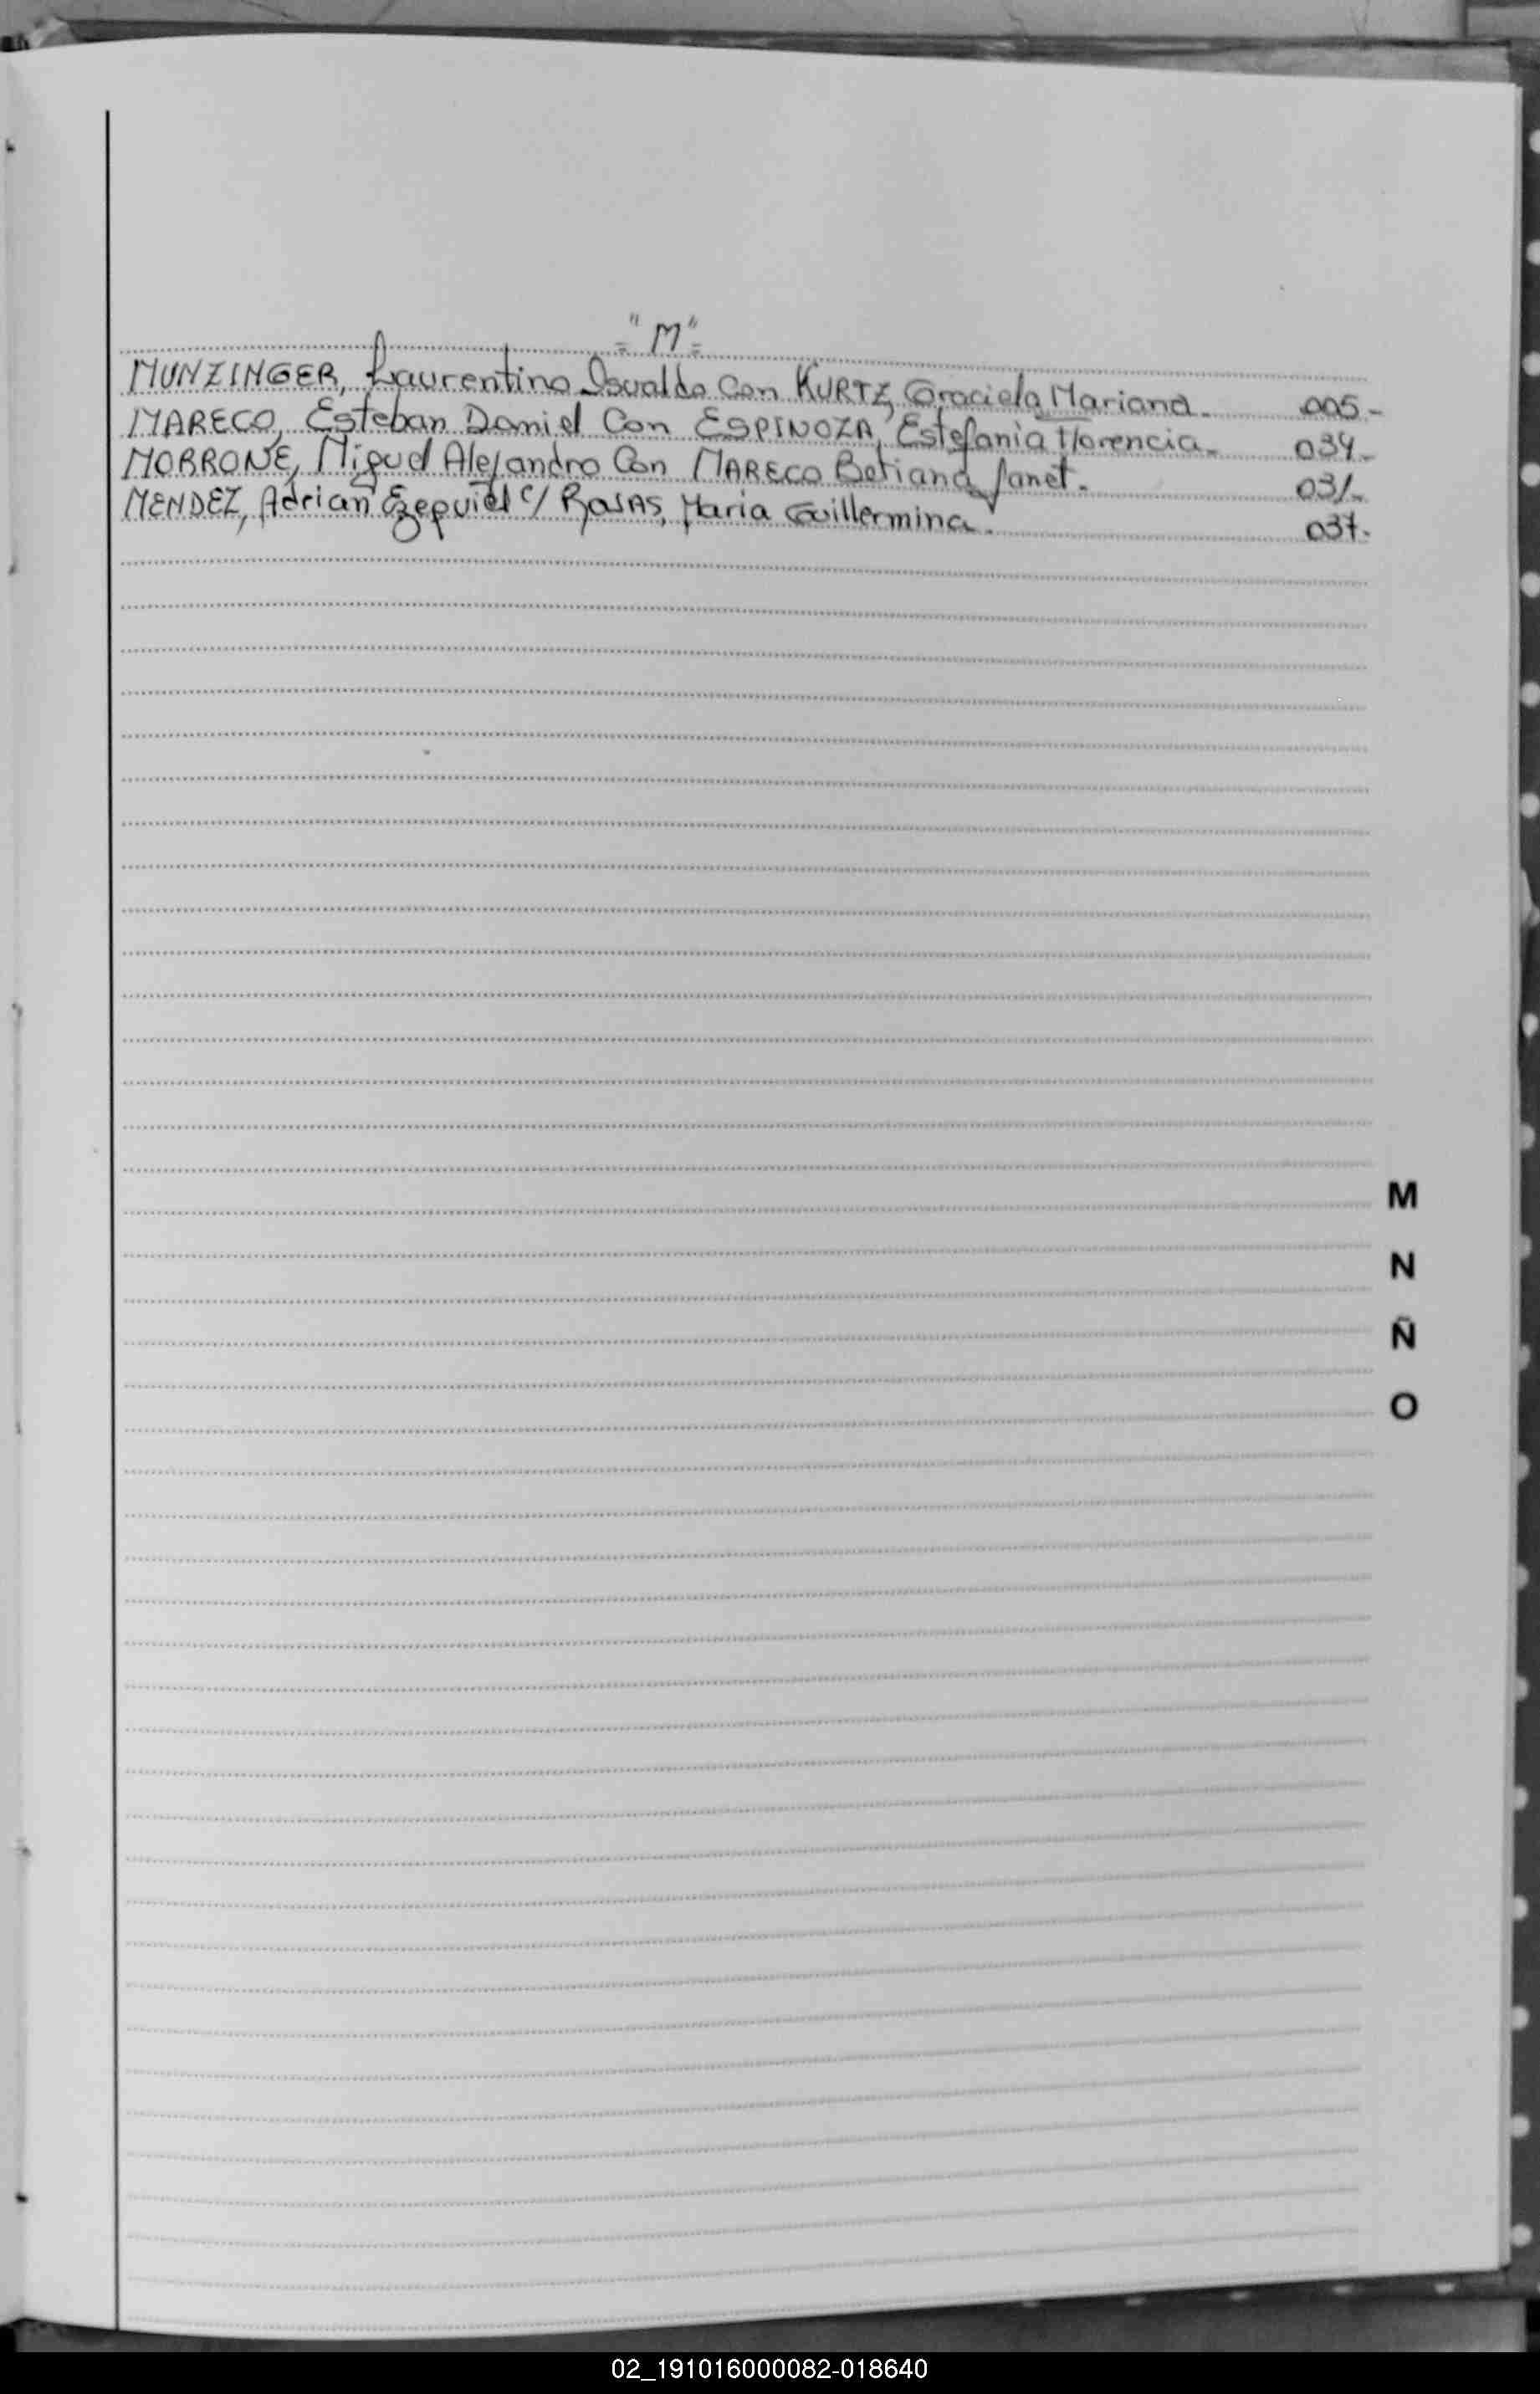 = "M" =
MUNZINGER, Laurentino Osvaldo Con KURTZ, Graciela Mariana. 005-
MARECO, Esteban Daniel Con ESPINOZA, Estefania Florencia. 034-
MORRONE, Miguel Alejandro Con MARECO Betiana Janet. 031-
MENDEZ, Adrian Ezequiel c/ ROJAS, Maria Guillermina. 037.
M
N
Ñ
O
02_191016000082-018640